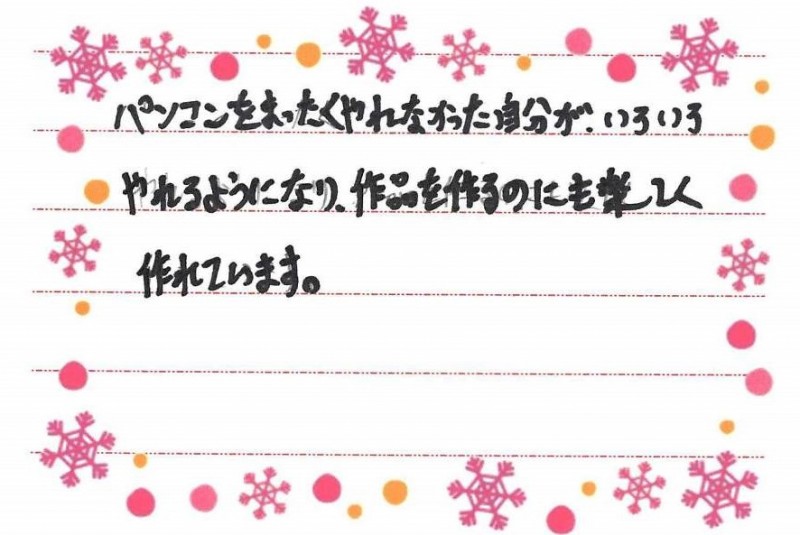 パソコンをまったくやれなかった自分が、いろいろ
やれるようになり、作品を作るのにも楽しく
作れています。